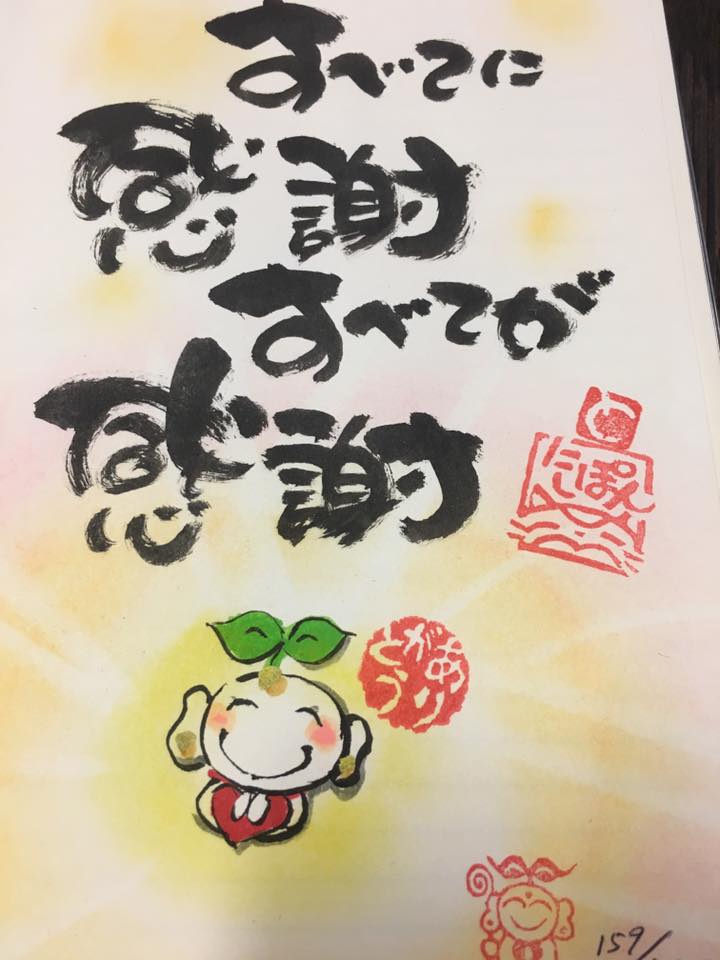 すべてに
感謝
すべてが
感謝
にっぽん
ありがとう
159/